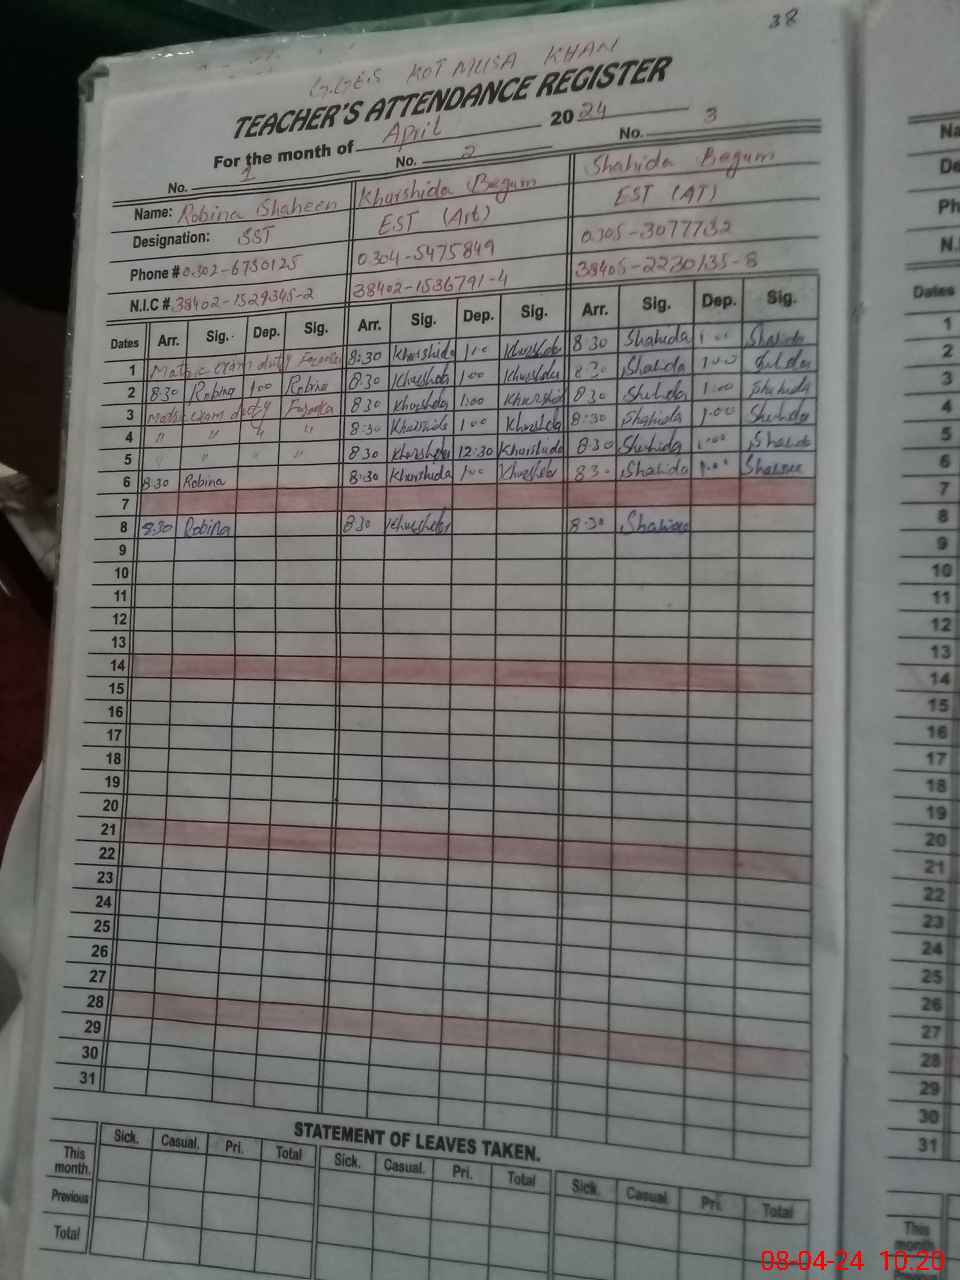 38
G.GES KOT MUSA KHAN
TEACHER'S ATTENDANCE REGISTER
For the month of April 2024
No. 1 No. 2 No. 3
Name: Robina Shaheen Khurshida Begum Shahida Begum
Designation: SST EST (Art) EST (AT)
Phone # 0302-6750125 0304-5475849 0305-3077732
N.I.C # 38402-1529345-2 38402-1536791-4 38405-2230135-8
Dates Arr. Sig. Dep. Sig. Arr. Sig. Dep. Sig. Arr. Sig. Dep. Sig.
1 Matric exam duty 8:30 Khurshida 1:00 Khurshida 8:30 Shahida 1:00 Shahida
2 8:30 Robina 1:00 Robina 8:30 Khurshida 1:00 Khurshida 8:30 Shahida 1:00 Shahida
3 Matric exam duty 8:30 Khurshida 1:00 Khurshida 8:30 Shahida 1:00 Shahida
4 " " " " 8:30 Khurshida 1:00 Khurshida 8:30 Shahida 1:00 Shahida
5 " " " " 8:30 Khurshida 12:30 Khurshida 8:30 Shahida 1:00 Shahida
6 8:30 Robina 8:30 Khurshida 1:00 Khurshida 8:30 Shahida 1:00 Shahida
7
8 8:30 Robina 8:30 Khurshida 8:30 Shahida
9
10
11
12
13
14
15
16
17
18
19
20
21
22
23
24
25
26
27
28
29
30
31
STATEMENT OF LEAVES TAKEN.
Sick. Casual. Pri. Total Sick. Casual. Pri. Total Sick. Casual. Pri. Total
This month.
Previous
Total
Na
De
Ph
N.I
Dates
1
2
3
4
5
6
7
8
9
10
11
12
13
14
15
16
17
18
19
20
21
22
23
24
25
26
27
28
29
30
31
This
month
08-04-24 10:20